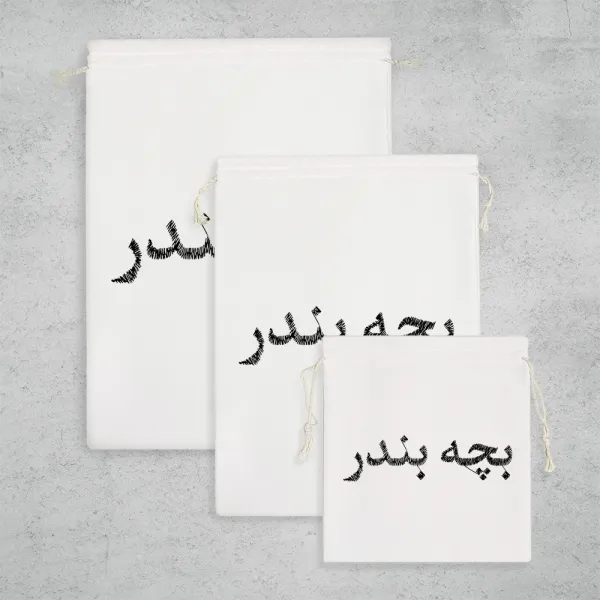 ندر
بچه بندر
بچه بندر